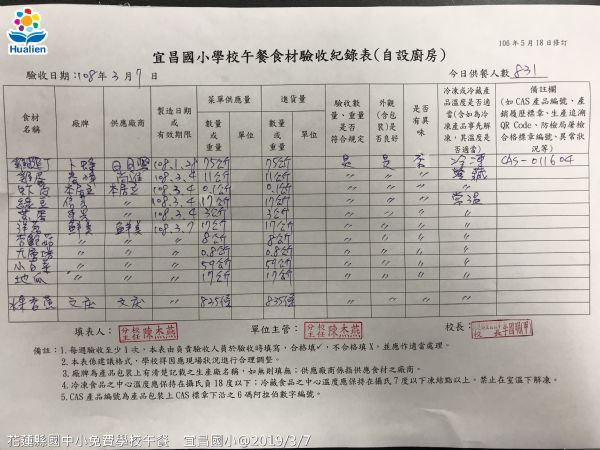 Hualien
106年5月18日修訂
宜昌國小學校午餐食材驗收紀錄表(自設廚房)
驗收日期:108年3月7日
今日供餐人數831
食材名稱 廠牌 供應廠商 製造日期或有效期限 菜單供應量 進貨量 驗收數量、重量是否符合規定 外觀(含包裝)是否良好 是否有異味 冷凍或冷藏產品溫度是否適當(含如為冷凍產品事先解凍,其溫度是否適當) 備註欄(如CAS產品編號、產銷履歷標章、生產追溯QR Code、防檢局屠檢合格標章編號、異常狀況等)
數量或重量 單位 數量或重量 單位
卜蜂 108.1.21 75公斤 75公斤 是 是 否 冷凍 CAS-011604
108.3.4 5公斤 5公斤 〃 〃 〃 冷藏
108.3.4 0.1公斤 0.1公斤 〃 〃 〃 〃
綠豆 108.3.4 17公斤 17公斤 〃 〃 〃 常溫
108.3.4 3公斤 3公斤 〃 〃 〃 〃
洋蔥 鮮美 鮮美 108.3.7 17公斤 17公斤 〃 〃 〃 〃
杏鮑菇 〃 〃 〃 8公斤 8公斤 〃 〃 〃 〃
九層塔 〃 〃 〃 0.8公斤 0.8公斤 〃 〃 〃 〃
小白菜 〃 〃 〃 59公斤 59公斤 〃 〃 〃 〃
地瓜 〃 〃 〃 17公斤 17公斤 〃 〃 〃 〃
香蕉 文成 文成 〃 835 835 〃 〃 〃 〃
填表人: 分校主任陳杰燕 單位主管: 分校主任陳杰燕 校長:
備註:1.每週驗收至少1次,本表由負責驗收人員於驗收時填寫,合格填✓,不合格填X,並應作適當處理。
2.本表係建議格式,學校得因應現場狀況進行合理調整。
3.廠牌為產品包裝上有清楚記載之生產廠名稱,如無則填無;供應廠商係指供應食材之廠商。
4.冷凍食品之中心溫度應保持在攝氏負18度以下;冷藏食品之中心溫度應保持在攝氏7度以下凍結點以上,禁止在室溫下解凍。
5.CAS產品編號為產品包裝上CAS標章下沿之6碼阿拉伯數字編號。
花蓮縣國中小免費學校午餐 宜昌國小@2019/3/7